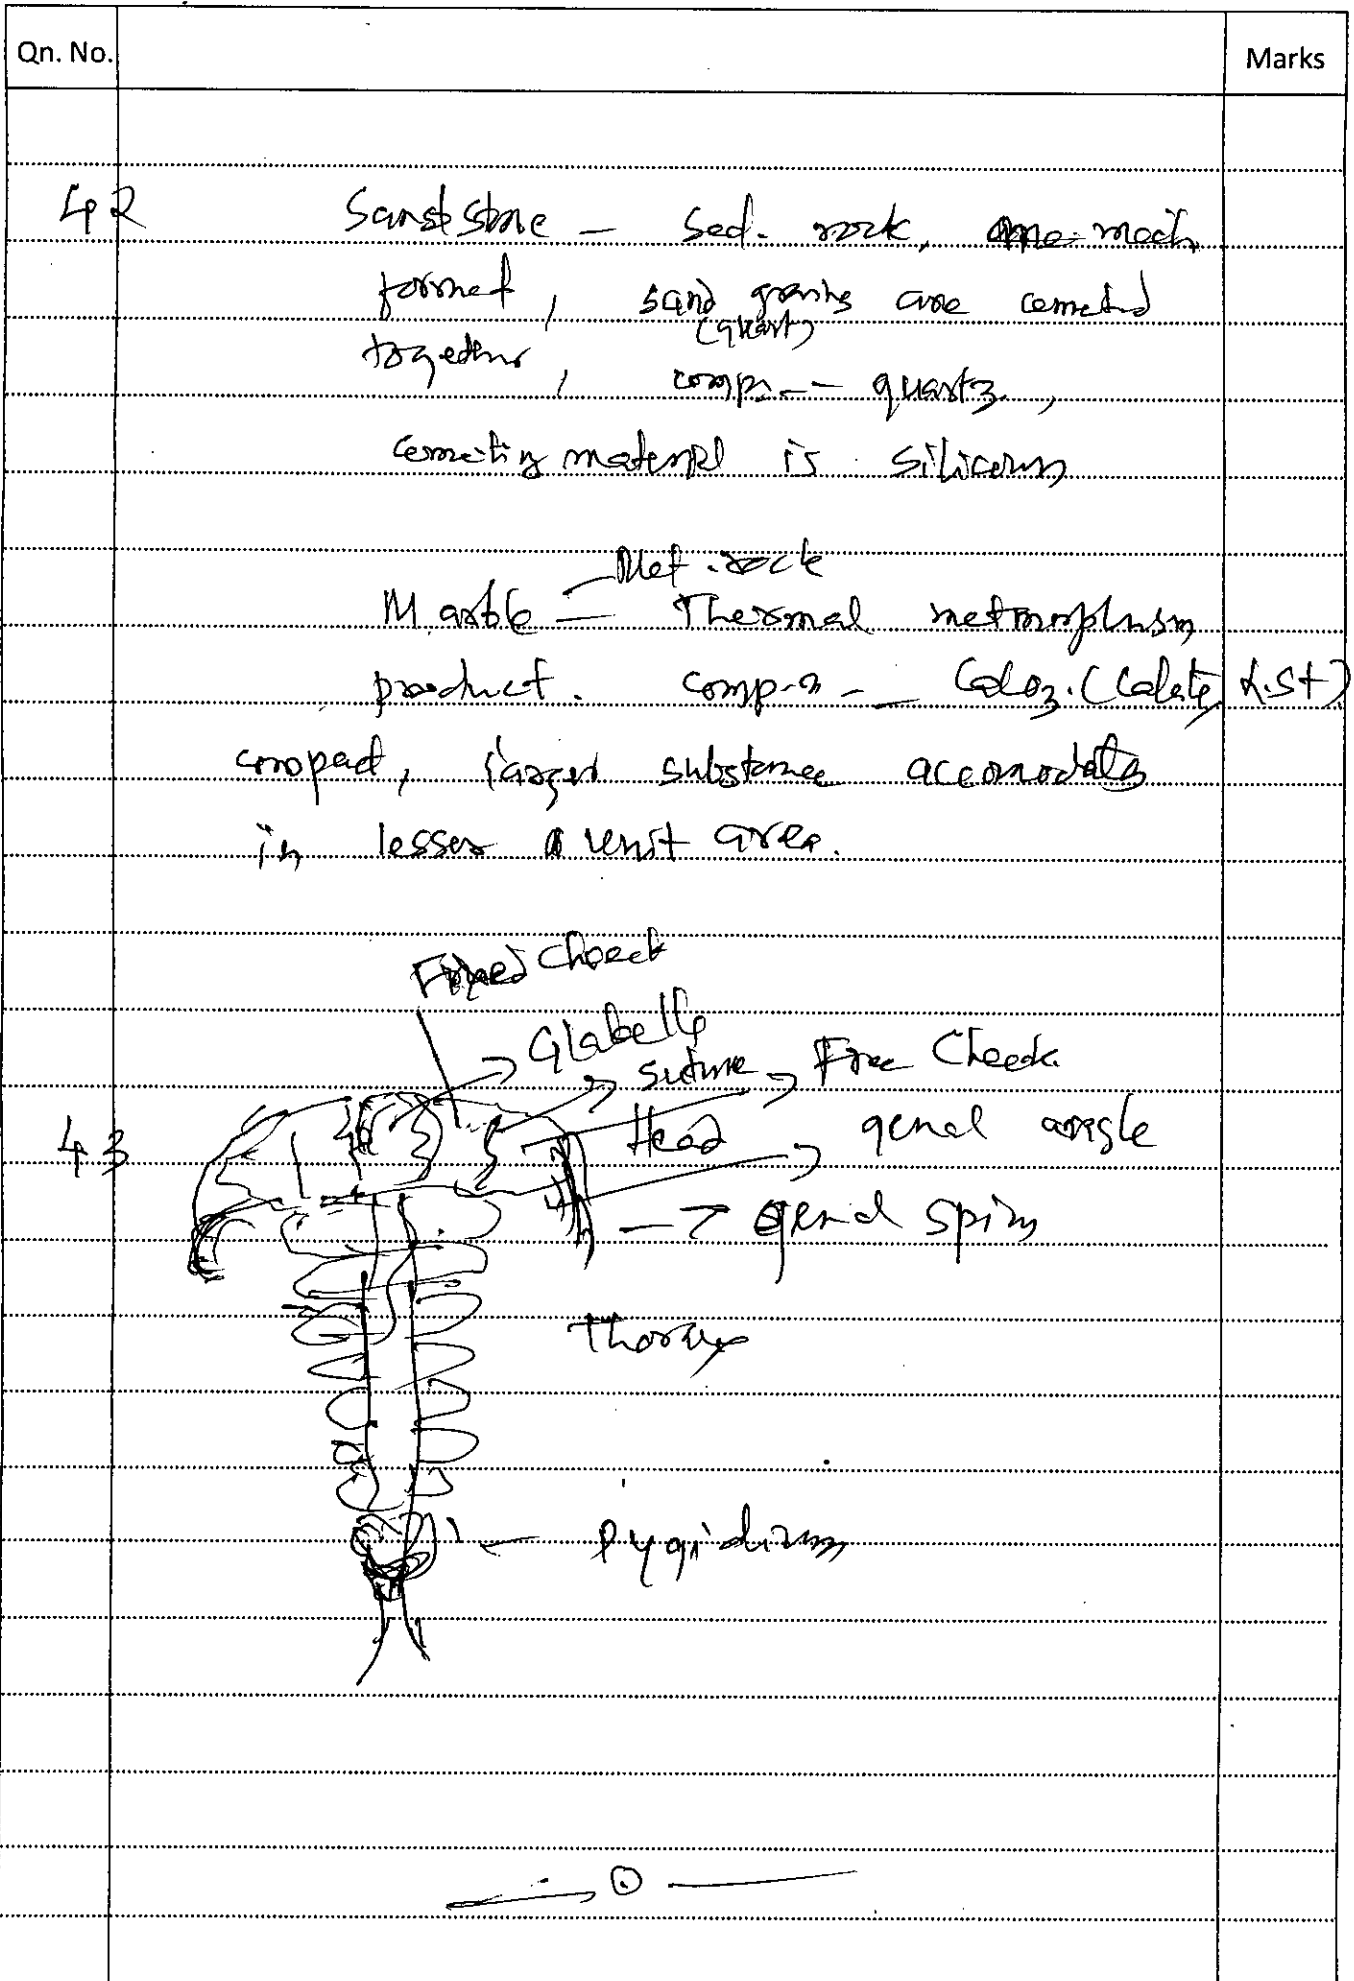 Qn. No. Marks
42 Sandstone - Sed. rock, mech.
formed, sand grains are cemented
(quartz)
together, comp. -- quartz,
cementing material is siliceous
Met. rock
Marble - Thermal metmorphism
product. comp.n -- CaCo3. (Calcite, L.St)
compact, larger substance accomodates
in lesser unit area.
Fixed Cheeck
Glabella
suture Free Cheek.
43 Head genal angle
genal spine
Thorax
Pygidium